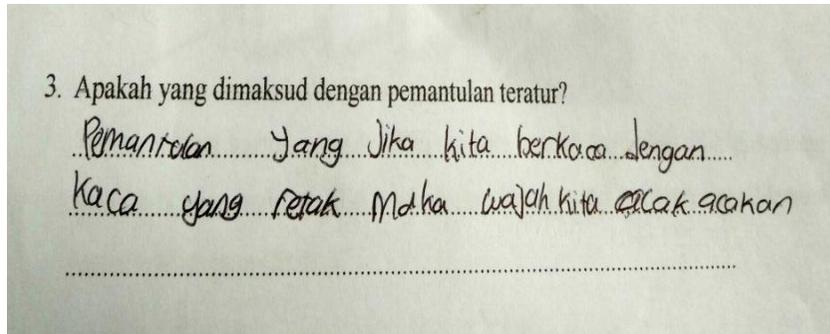 3. Apakah yang dimaksud dengan pemantulan teratur?
Pemantulan yang Jika kita berkaca dengan
Kaca yang retak Maka wajah kita acak acakan